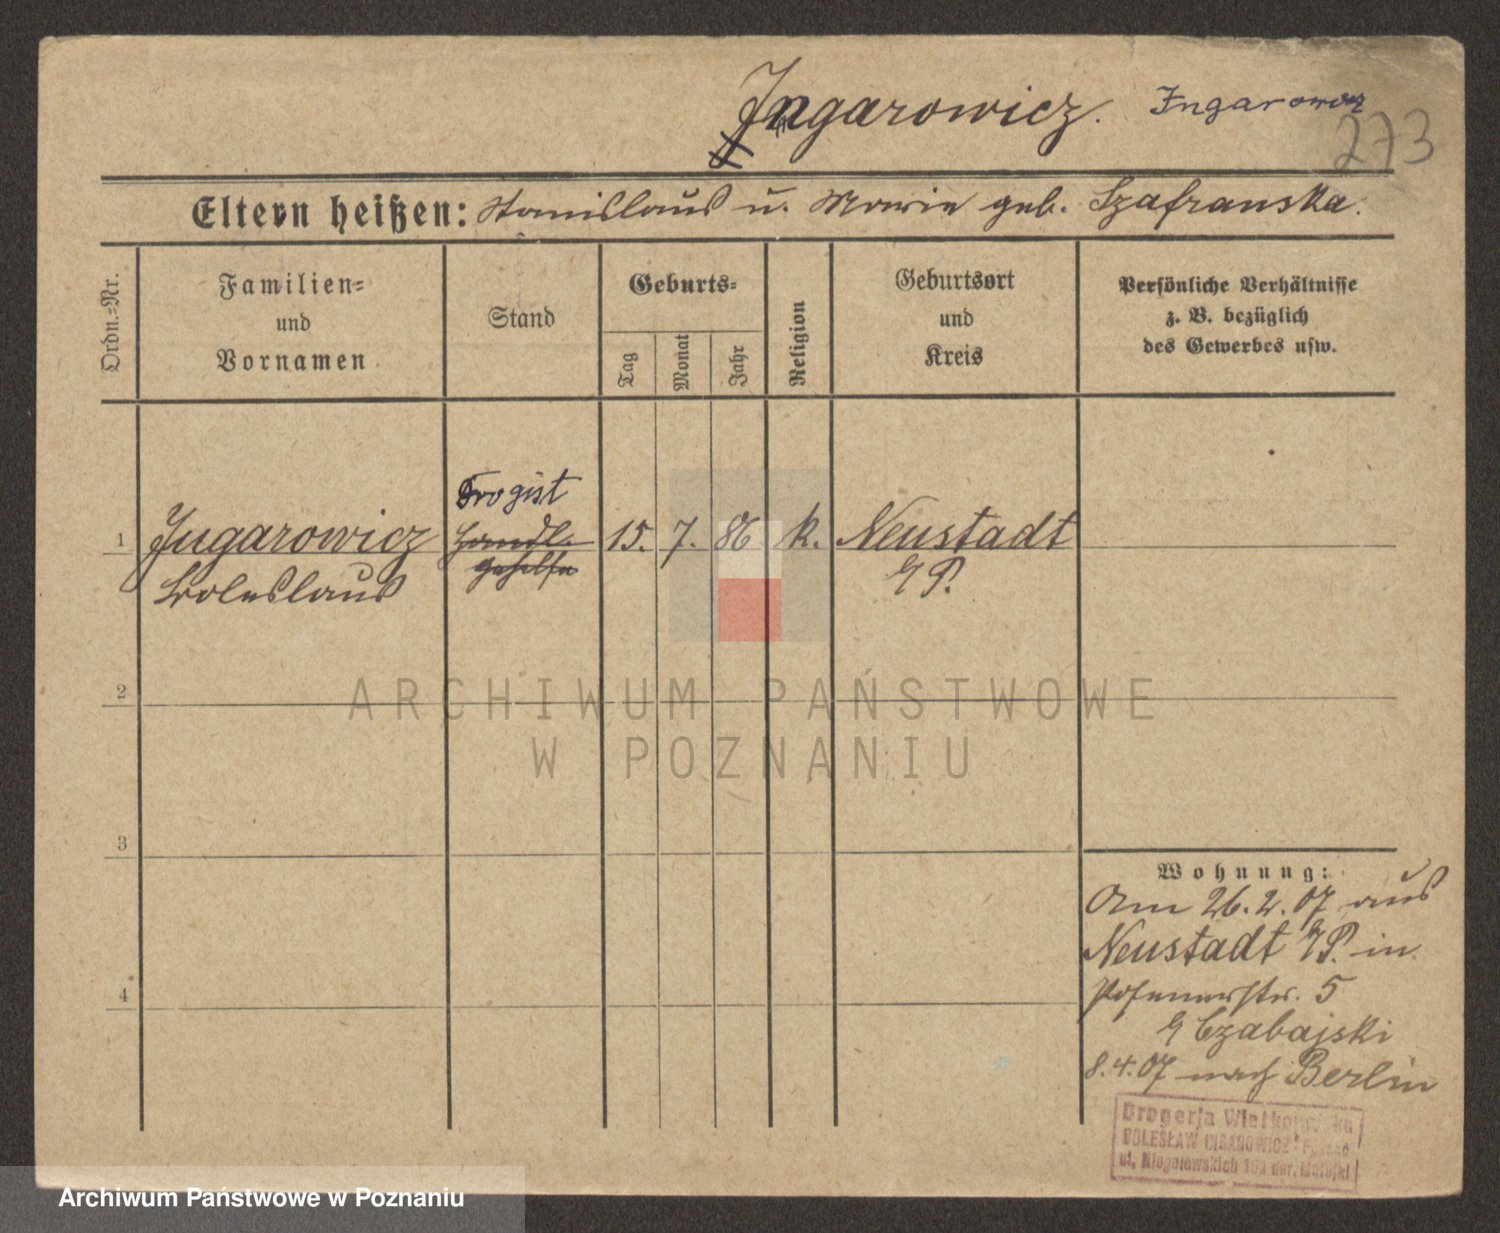 Ingarowicz. Ingarowicz
273
Eltern heißen: Stanislaus u. Marie geb. Szafranska.
Ordn.=Nr.
Familien=
und
Vornamen
Stand
Geburts=
Tag
Monat
Jahr
Religion
Geburtsort
und
Kreis
Persönliche Verhältnisse
z. B. bezüglich
des Gewerbes usw.
Drogist
1 Ingarowicz Handl. 15. 7. 86 k. Neustadt
Boleslaus gehilfe
2
3
4
Wohnung:
Am 26.2.07 aus
Neustadt in
Posenerstr. 5
Czabajski
8.4.07 nach Berlin
Drogerja
BOLESŁAW INGAROWICZ
ul. Niegolewskich
ARCHIWUM PAŃSTWOWE
W POZNANIU
Archiwum Państwowe w Poznaniu